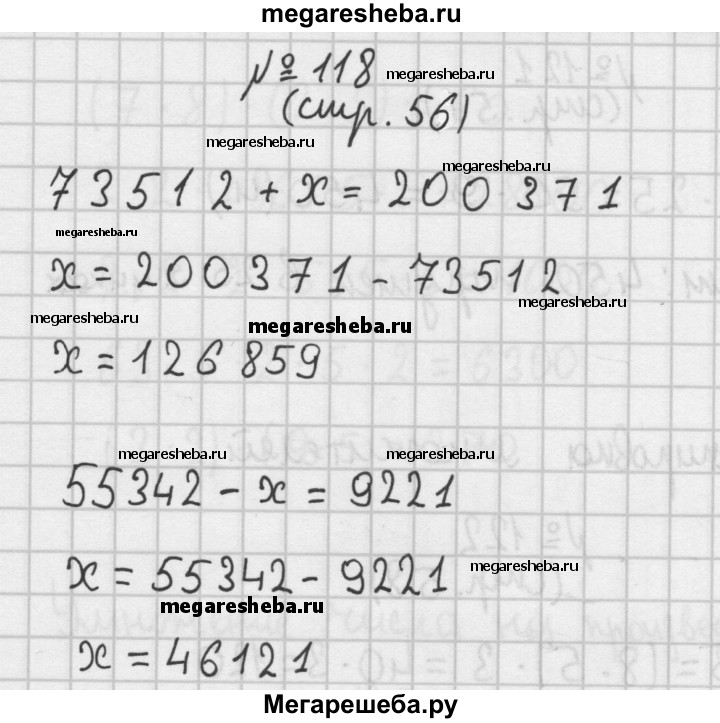 megaresheba.ru
№ 118 megaresheba.ru
(стр. 56)
megaresheba.ru
megaresheba.ru
73512 + x = 200371
megaresheba.ru
x = 200371 - 73512
megaresheba.ru
megaresheba.ru
megaresheba.ru
x = 126859
megaresheba.ru
megaresheba.ru
55342 - x = 9221
x = 55342 - 9221
megaresheba.ru
megaresheba.ru
x = 46121
Мегарешеба.ру